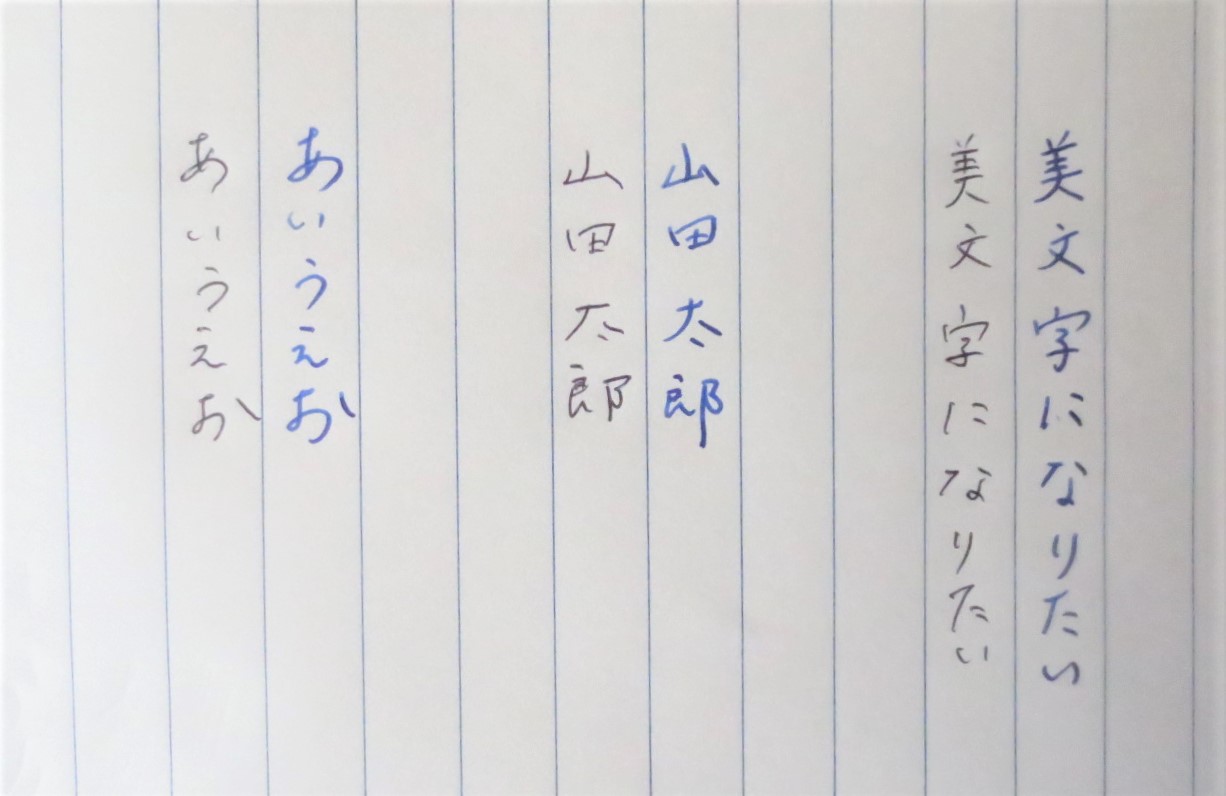 美文字になりたい
美文字になりたい
山田太郎
山田太郎
あいうえお
あいうえお